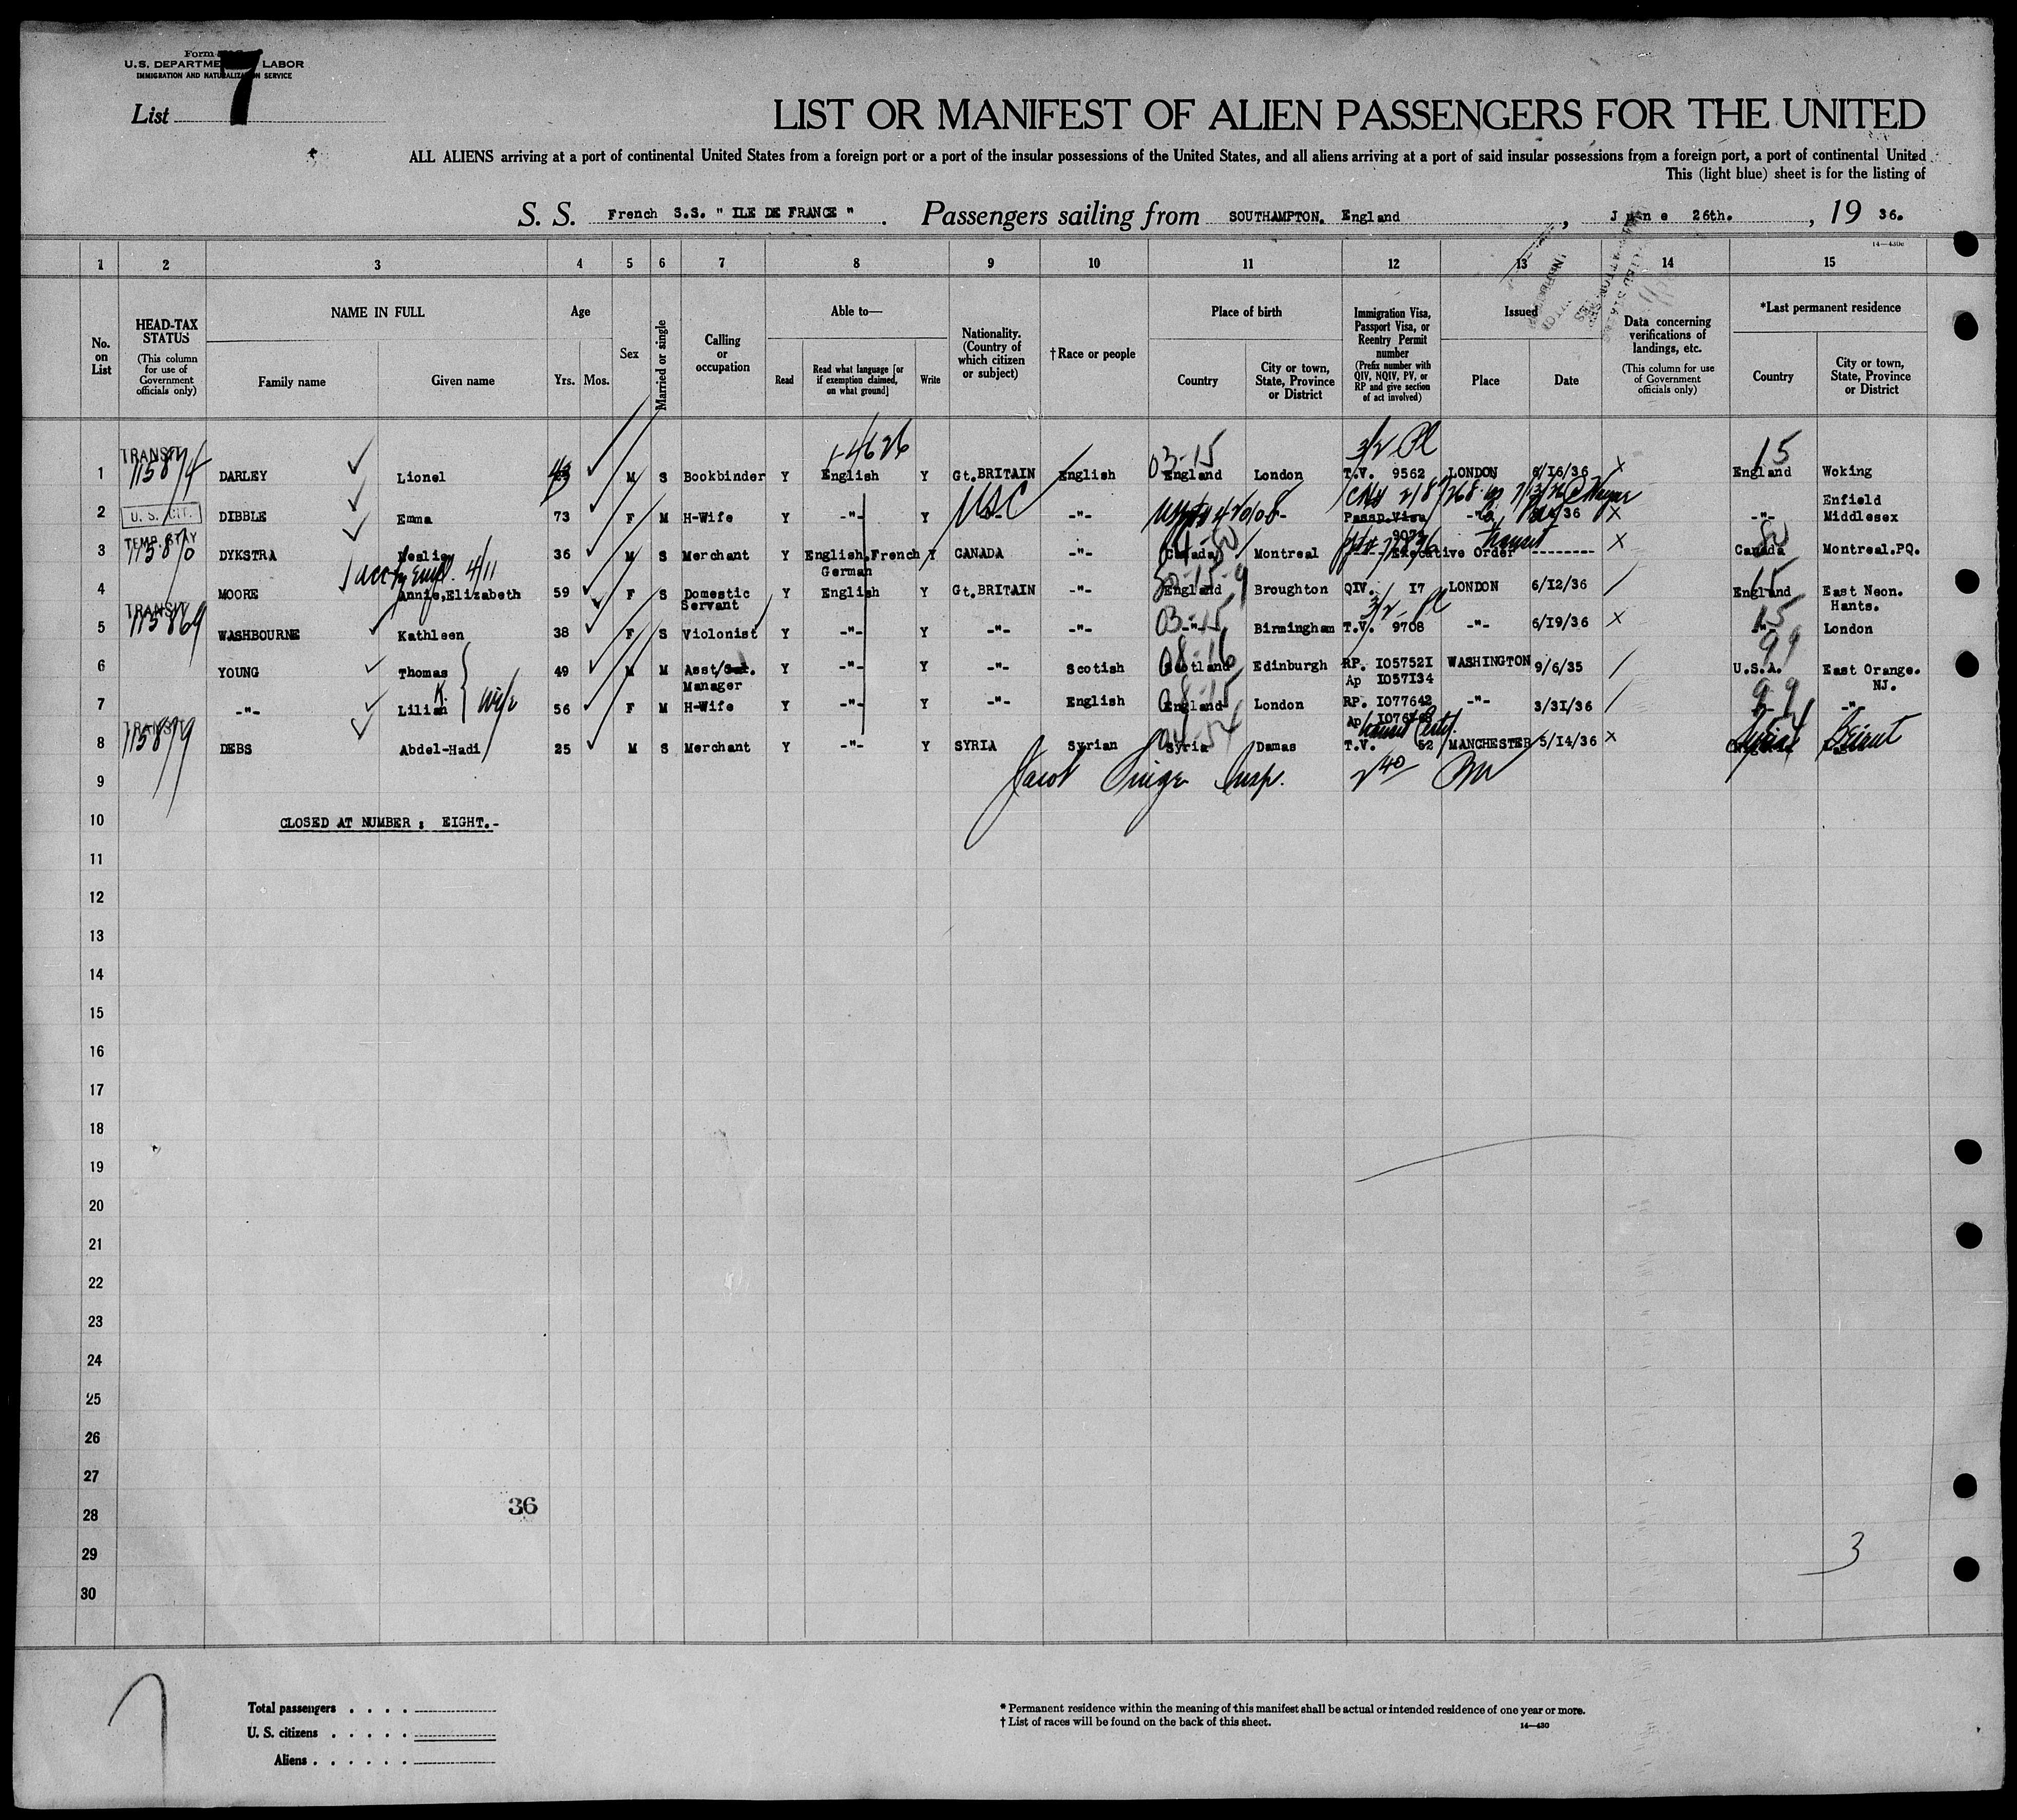 Form
U.S. DEPARTME LABOR
IMMIGRATION AND NATURALIZATION SERVICE
7
List
LIST OR MANIFEST OF ALIEN PASSENGERS FOR THE UNITED
ALL ALIENS arriving at a port of continental United States from a foreign port or a port of the insular possessions of the United States, and all aliens arriving at a port of said insular possessions from a foreign port, a port of continental United
This (light blue) sheet is for the listing of
S. S. French S.S. " ILE DE FRANCE " . Passengers sailing from SOUTHAMPTON. England , June 26th. , 19 36.
14—430c
1 2 3 4 5 6 7 8 9 10 11 12 13 14 15
No. on List
HEAD-TAX STATUS (This column for use of Government officials only)
NAME IN FULL
Family name Given name
Age
Yrs. Mos.
Sex
Married or single
Calling or occupation
Able to—
Read
Read what language [or if exemption claimed, on what ground]
Write
Nationality. (Country of which citizen or subject)
†Race or people
Place of birth
Country
City or town, State, Province or District
Immigration Visa, Passport Visa, or Reentry Permit number (Prefix number with QIV, NQIV, PV, or RP and give section of act involved)
Issued
Place Date
Data concerning verifications of landings, etc. (This column for use of Government officials only)
*Last permanent residence
Country
City or town, State, Province or District
+4626 3/2 Pl
TRANSIT 03-15 15
1 115874 DARLEY Lionel 43 M S Bookbinder Y English Y Gt.BRITAIN English England London T.V. 9562 LONDON 6/16/36 x England Woking
Enfield
2 U. S. CIT. DIBBLE Emma 73 F M H-Wife Y -"- Y USC -"- Passp.Visa -"- 36 x -"- Middlesex
TEMP. STAY transit 80
3 115870 DYKSTRA Leslie 36 M S Merchant Y English,French Y CANADA -"- Canada Montreal Executive Order --------- x Canada Montreal.PQ.
German
4/11 15
4 MOORE Annie,Elizabeth 59 F S Domestic Y English Y Gt.BRITAIN -"- England Broughton QIV. 17 LONDON 6/12/36 / England East Neon.
Servant Hants.
TRANSIT 03-15 3/2- Pl 15
5 115869 WASHBOURNE Kathleen 38 F S Violonist Y -"- Y -"- -"- -"- Birmingham T.V. 9708 -"- 6/19/36 x -"- London
08-16 99
6 YOUNG Thomas 49 M M Asst/Gal. Y -"- Y -"- Scotish Scotland Edinburgh RP. 1057521 WASHINGTON 9/6/35 / U.S.A. East Orange.
Manager Ap 1057134 NJ.
K. wife 08-15 99
7 -"- Lilian 56 F M H-Wife Y -"- Y -"- English England London RP. 1077642 -"- 3/31/36 / -"- -"-
TRANSIT Transit Certif.
8 115879 DEBS Abdel-Hadi 25 M S Merchant Y -"- Y SYRIA Syrian Syria Damas T.V. 52 MANCHESTER 5/14/36 x Syria Beirut
9 Insp. 240
10 CLOSED AT NUMBER ; EIGHT.-
11
12
13
14
15
16
17
18
19
20
21
22
23
24
25
26
27
28 36
29 3
30
Total passengers . . . .
U. S. citizens . . . . .
Aliens . . . . . .
* Permanent residence within the meaning of this manifest shall be actual or intended residence of one year or more.
† List of races will be found on the back of this sheet. 14—430